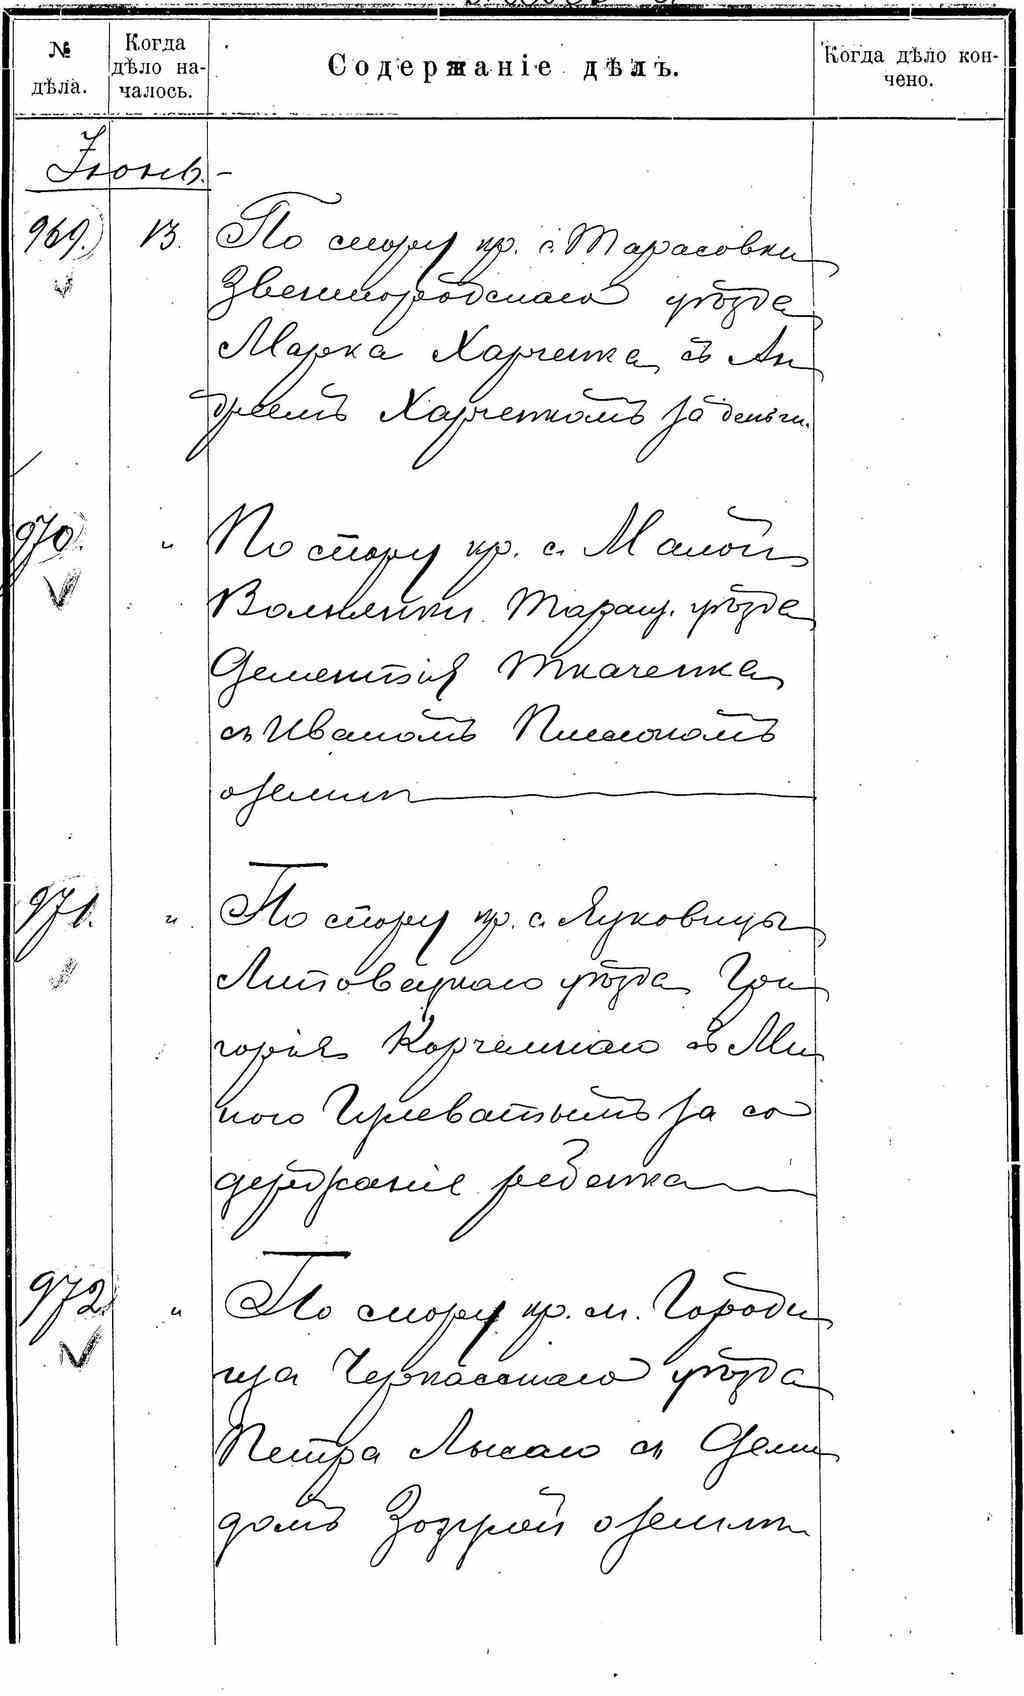 № дѣла.
Когда дѣло на-
чалось.
Содержаніе дѣлъ.
Когда дѣло кон-
чено.
Іюнь.-
969. 13. По спору кр. с. Тарасовки
Звенигородскаго уѣзда
Марка Харченка съ Ан
дреемъ Харченкомъ за деньги.
970. " По спору кр. с. Малой
Волнянки Таращ. уѣзда
Дементія Ткаченка
съ Иваномъ
о землѣ
971. " По спору кр. с. Яуковицы
Липовецкаго уѣзда Гри
горія Корчемнаго съ Ми
ного Гулеватымъ за со
держаніе ребенка
972 " По спору кр. м. Городи
ща Черкасскаго уѣзда
Петра Лысаго съ Деми
домъ Зозулей о землѣ